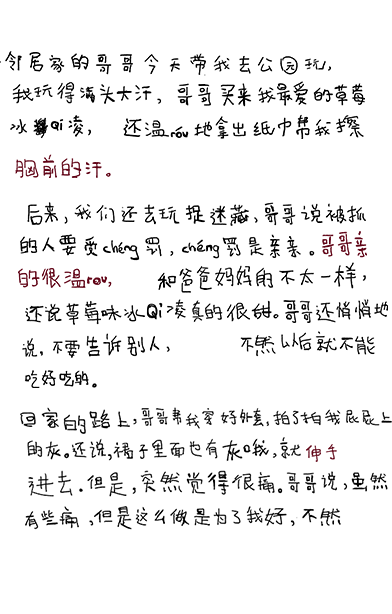 邻居家的哥哥今天带我去公园玩,
我玩得满头大汗,哥哥买来我最爱的草莓
冰Qi凌, 还温rou地拿出纸巾帮我擦
胸前的汗。
后来,我们还去玩捉迷藏,哥哥说被抓
的人要受chéng罚,chéng罚是亲亲。哥哥亲
的很温rou, 和爸爸妈妈的不太一样,
还说草莓味冰Qi凌真的很甜。哥哥还悄悄地
说,不要告诉别人, 不然以后就不能
吃好吃的。
回家的路上,哥哥帮我穿好外套,拍了拍我屁屁上
的灰。还说,裙子里面也有灰哦,就伸手
进去.但是,突然觉得很痛。哥哥说,虽然
有些痛,但是这么做是为了我好,不然